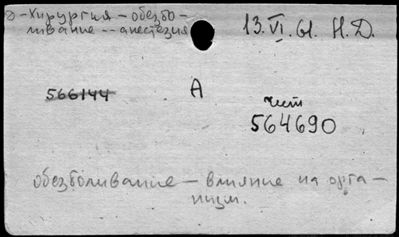 Э-Хирургия - обезбо-
ливание -- анестезия
13.VI.61. Н.Д.
566144
А
чист
564690
обезболивание - влияние на орга-
низм.